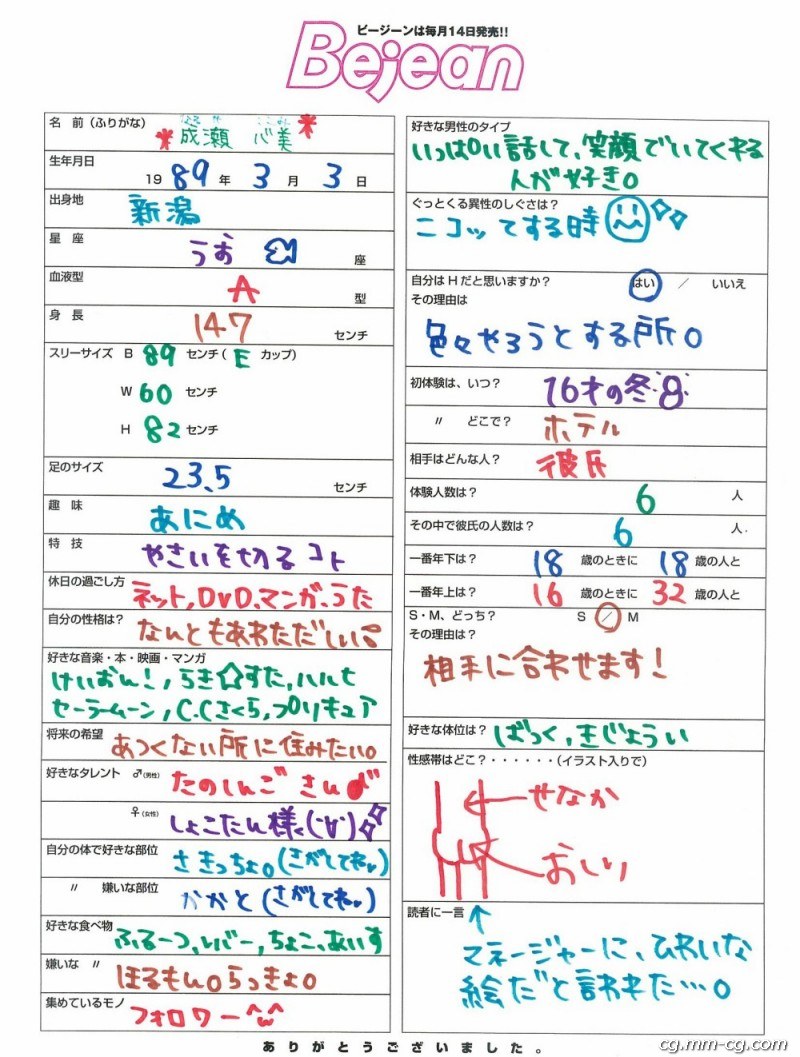 ビージーンは毎月14日発売!!
Bejean
名 前(ふりがな)
成瀬 心美
生年月日
1989年 3月 3日
出身地
新潟
星 座
うお 座
血液型
A 型
身 長
147 センチ
スリーサイズ B 89 センチ( E カップ)
W 60 センチ
H 82 センチ
足のサイズ
23.5 センチ
趣 味
あにめ
特 技
やさいを切るコト
休日の過ごし方
ネット,DVD,マンガ,うた
自分の性格は?
なんともあわただしい
好きな音楽・本・映画・マンガ
けいおん!,らき☆すた,ハルヒ
セーラームーン,C.Cさくら,プリキュア
将来の希望
あつくない所に住みたい。
好きなタレント ♂(男性)
たのしんごさん
♀(女性)
しょこたん様
自分の体で好きな部位
さきっちょ。(さがしてね)
〃 嫌いな部位
かかと(さがしてね)
好きな食べ物
ふるーつ,レバー,ちょこ,あいす
嫌いな 〃
ほるもん。らっきょ。
集めているモノ
フォロワー^ω^
好きな男性のタイプ
いっぱい話して、笑顔でいてくれる
人が好き。
ぐっとくる異性のしぐさは?
ニコッてする時
自分はHだと思いますか? はい / いいえ
その理由は
色々やろうとする所。
初体験は、いつ?
16才の冬
〃 どこで?
ホテル
相手はどんな人?
彼氏
体験人数は?
6 人
その中で彼氏の人数は?
6 人.
一番年下は? 18 歳のときに 18 歳の人と
一番年上は? 16 歳のときに 32 歳の人と
S・M、どっち? S / M
その理由は?
相手に合わせます!
好きな体位は?
ばっく,きじょうい
性感帯はどこ?・・・・・・(イラスト入りで)
せなか
おしり
読者に一言
↑
マネージャーに、ひわいな
絵だと言われた…。
ありがとうございました。
cg.mm-cg.com